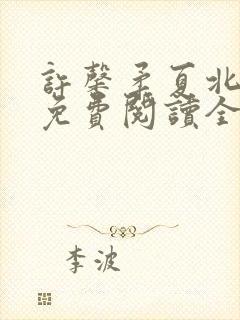 許馨矛夏北
免費閱讀全
李波